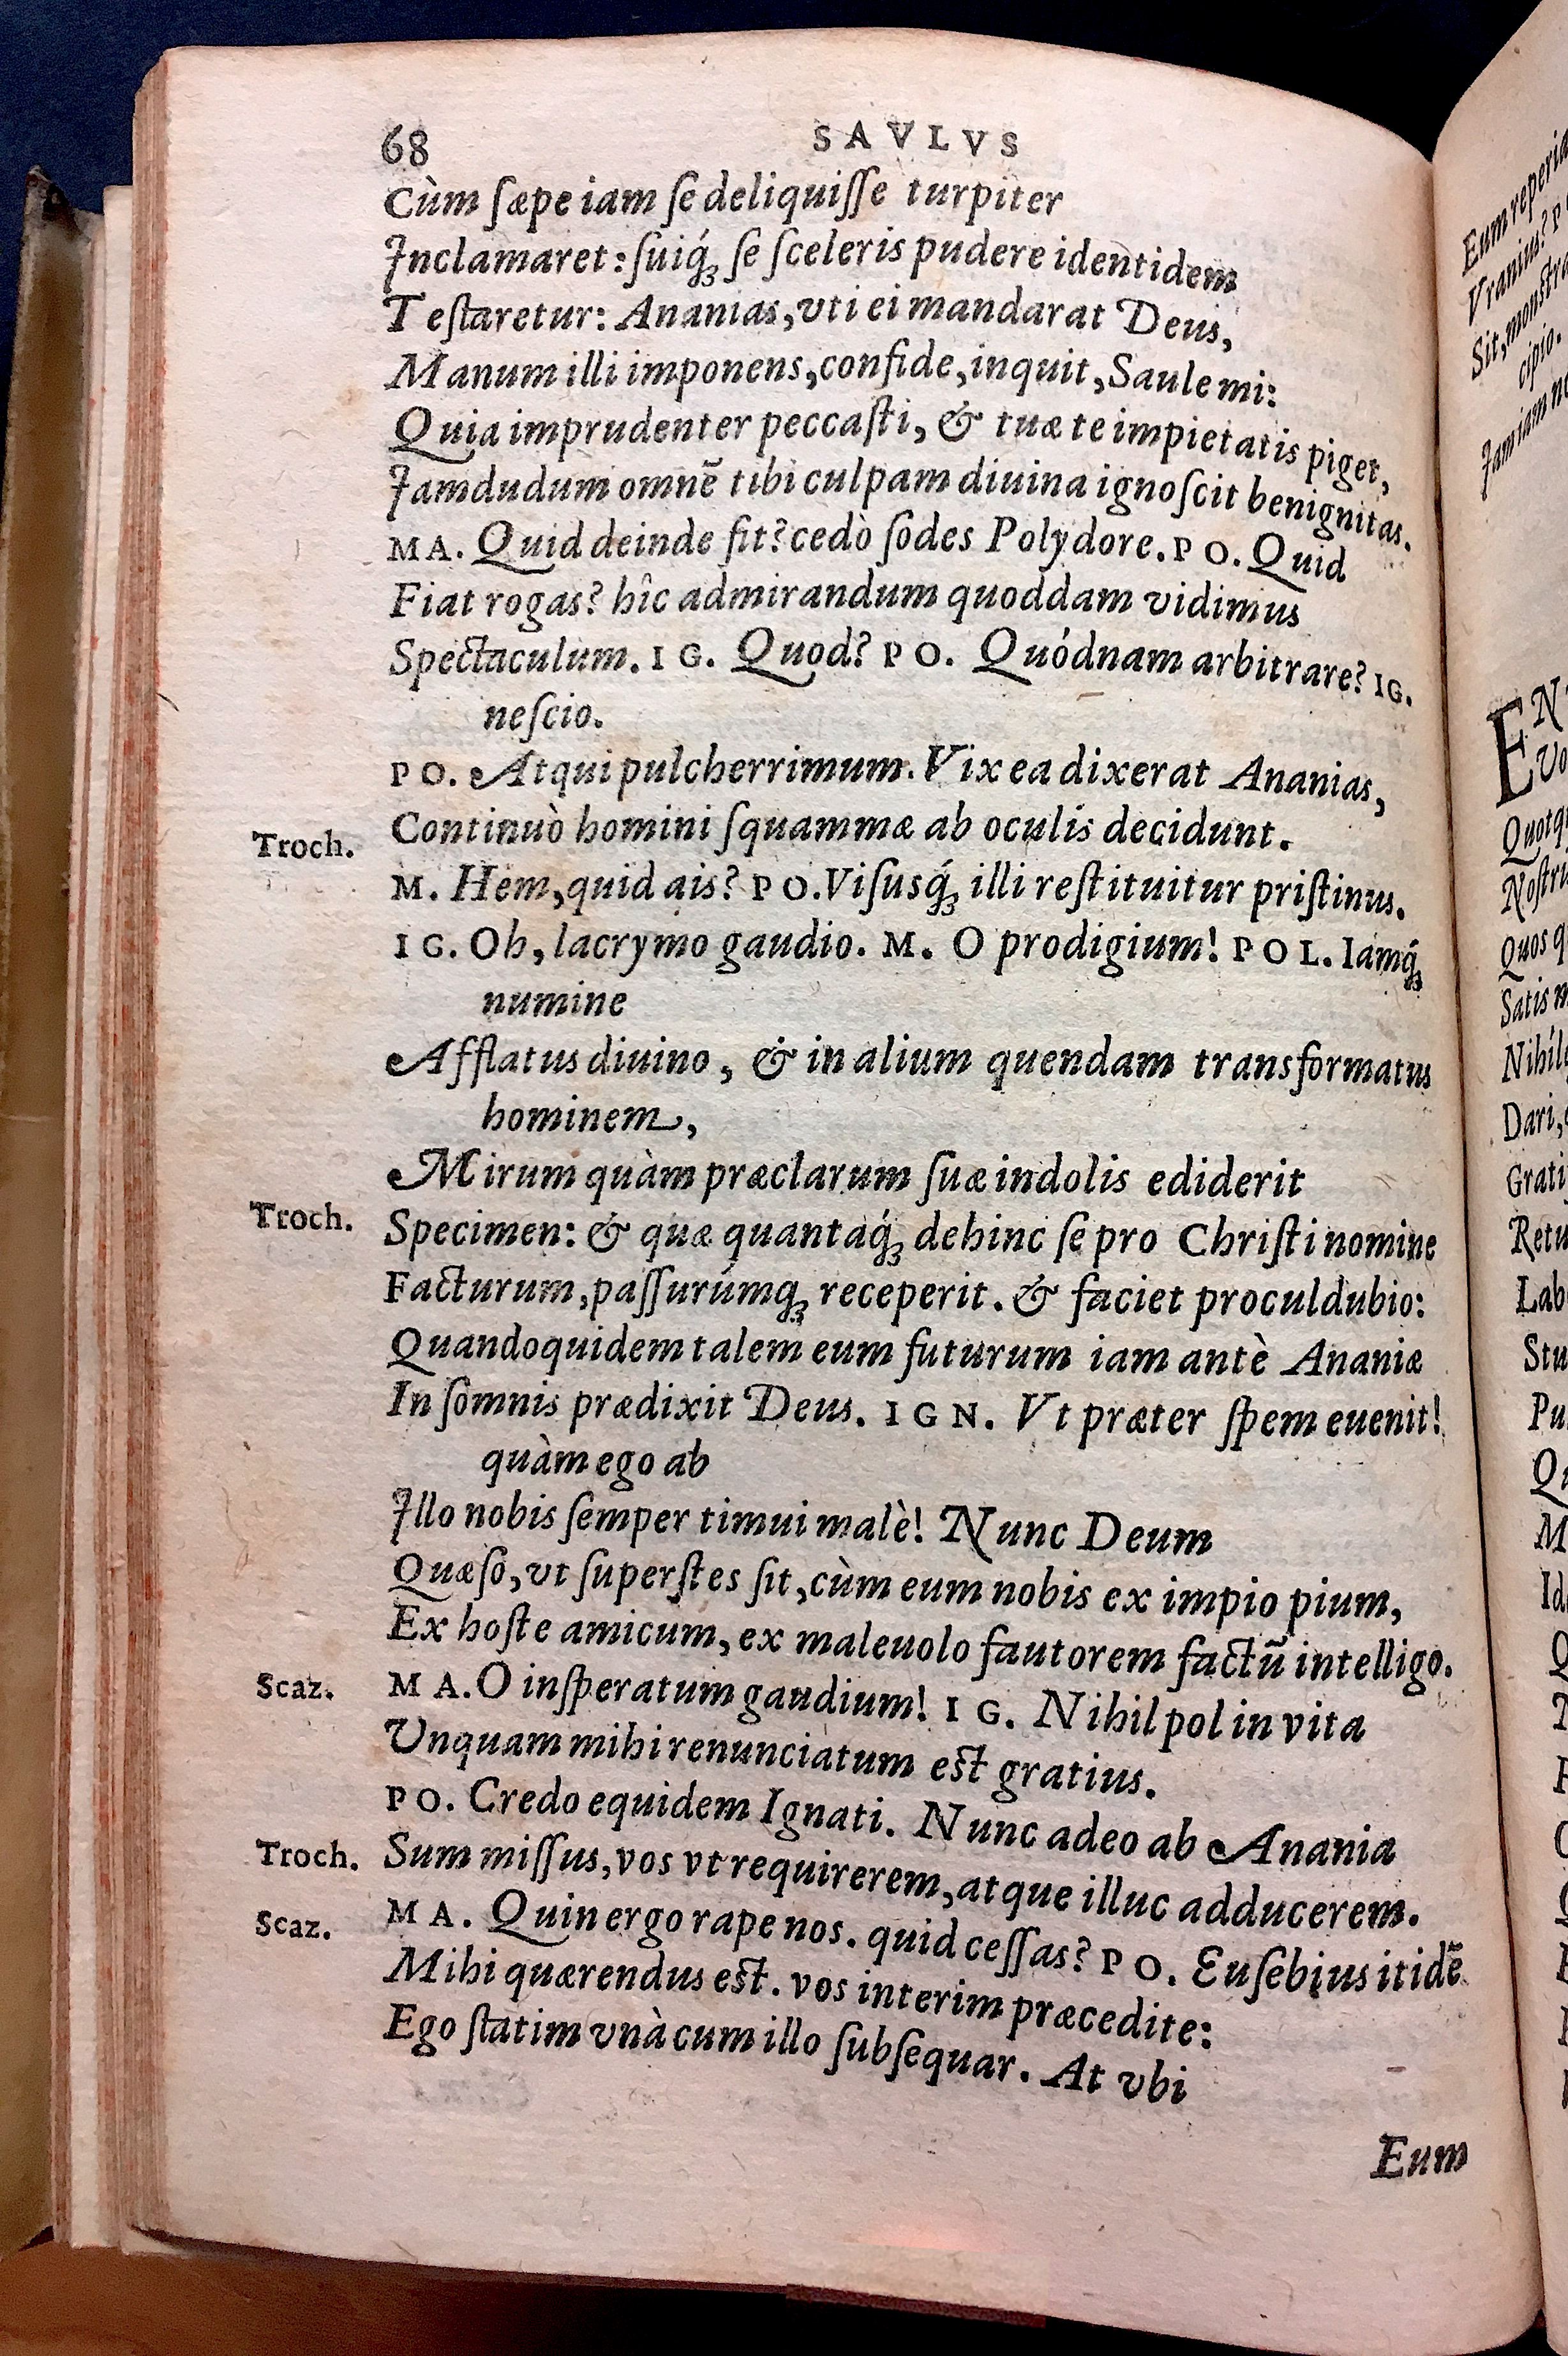 68 SAVLVS
Cùm ſæpe iam ſe deliquiſſe turpiter
Inclamaret: ſuiq́ꝫ ſe ſceleris pudere identidem
Teſtaretur: Ananias, vti ei mandarat Deus,
Manum illi imponens, confide, inquit, Saule mi:
Quia imprudenter peccaſti, & tuæ te impietatis piget,
Iamdudum omnẽ tibi culpam diuina ignoſcit benignitas.
MA. Quid deinde fit? cedò ſodes Polydore. PO. Quid
Fiat rogas? hîc admirandum quoddam vidimus
Spectaculum. IG. Quod? PO. Quódnam arbitrare? IG.
neſcio.
PO. Atqui pulcherrimum. Vix ea dixerat Ananias,
Troch. Continuò homini ſquammæ ab oculis decidunt.
M. Hem, quid ais? PO. Viſusq́ꝫ illi reſtituitur priſtinus.
IG. Oh, lacrymo gaudio. M. O prodigium! POL. Iamq́ꝫ
numine
Afflatus diuino, & in alium quendam transformatus
hominem,
Mirum quàm præclarum ſuæ indolis ediderit
Troch. Specimen: & quæ quantaq́ꝫ dehinc ſe pro Chriſti nomine
Facturum, paſſurúmqꝫ receperit. & faciet proculdubio:
Quandoquidem talem eum futurum iam antè Ananiæ
In ſomnis prædixit Deus. IGN. Vt præter ſpem euenit!
quàm ego ab
Illo nobis ſemper timui malè! Nunc Deum
Quæſo, vt ſuperſtes ſit, cùm eum nobis ex impio pium,
Ex hoſte amicum, ex maleuolo fautorem factũ intelligo.
Scaz. MA. O inſperatum gaudium! IG. Nihil pol in vita
Vnquam mihi renunciatum eſt gratius.
PO. Credo equidem Ignati. Nunc adeo ab Anania
Troch. Sum miſſus, vos vt requirerem, atque illuc adducerem.
Scaz. MA. Quin ergo rape nos. quid ceſſas? PO. Euſebius itidẽ
Mihi quærendus eſt. vos interim præcedite:
Ego ſtatim vnà cum illo ſubſequar. At vbi
Eum